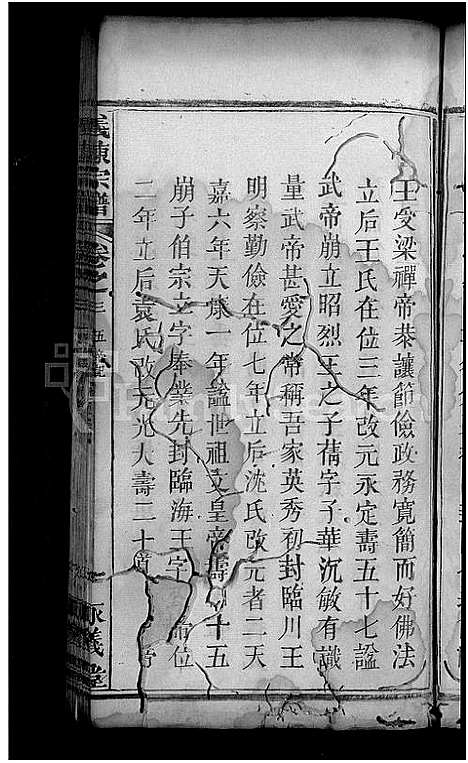 王受梁禪帝恭讓節儉政務寬簡而好佛法
立后王氏在位三年改元永定壽五十七謚
武帝崩立昭烈王之子蒨字子華沉敏有識
量武帝甚愛之常稱吾家英秀初封臨川王
明察勤儉在位七年立后沈氏改元者二天
嘉六年天康一年謚世祖文皇帝壽四十五
崩子伯宗立字奉業先封臨海王字帝位
二年立后袁氏改元光大壽二十
義陳宗譜
卷之
義堂